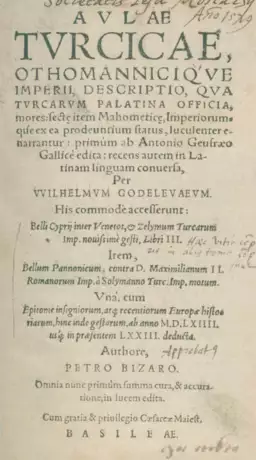 Societatis Jesu
Año 15
AVLAE
TVRCICAE,
OTHOMANNICIQ'VE
IMPERII, DESCRIPTIO, QVA
TVRCARVM PALATINA OFFICIA,
mores: sectę item Mahometicę, Imperiorum-
que ex ea prodeuntium status, luculenter e-
narrantur: primùm ab Antonio Geufræo
Gallicè edita: recens autem in La-
tinam linguam conuersa,
Per
VVILHELMVM GODELEVAEVM.
His commodè accesserunt:
Belli Cyprij inter Venetos, & Zelymum Turcarum
Imp. nouißimè gesti, Libri III.
Item,
Bellum Pannonicum, contra D. Maximilianum II.
Romanorum Imp. à Solymanno Turc. Imp. motum.
Vnà cum
Epitome insigniorum, atq; recentiorum Europæ histo-
riarum, hinc inde gestarum, ab anno M.D.LXIIII.
usq; in præsentem LXXIII. deducta.
Authore,
PETRO BIZARO.
Omnia nunc primùm summa cura, & accura-
tione, in lucem edita.
Cum gratia & priuilegio Cæsareæ Maiest.
BASILEAE.